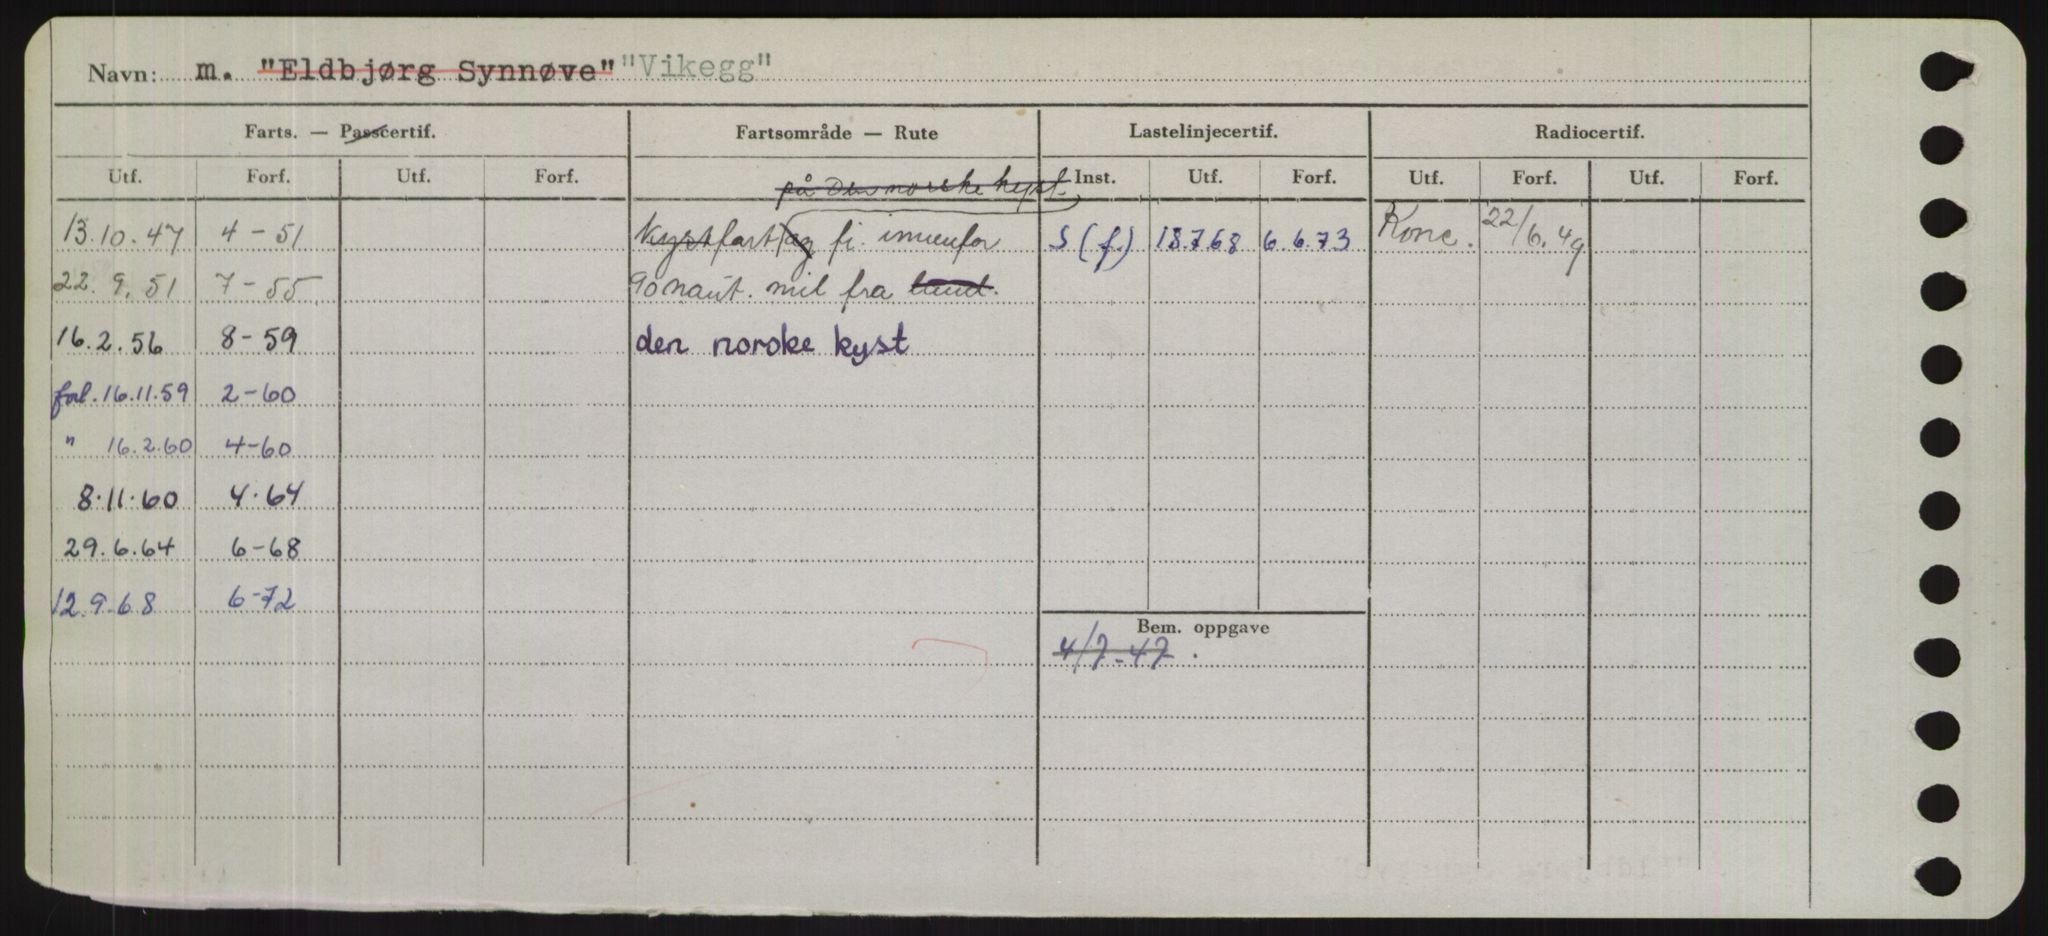 Navn: m. "Eldbjørg Synnøve" "Vikegg"
Farts. — Passcertif. Fartsområde — Rute Lastelinjecertif. Radiocertif.
Utf. Forf. Utf. Forf. på den norske kyst. Inst. Utf. Forf. Utf. Forf. Utf. Forf.
13.10.47 4-51 Kystfart og fi. innenfor S (f.) 18.7.68 6.6.73 Konc. 22/6.49
22.9.51 7-55 90 naut. mil fra land.
16.2.56 8-59 den norske kyst
forl. 16.11.59 2-60
" 16.2.60 4-60
8.11.60 4.64
29.6.64 6-68
12.9.68 6-72
Bem. oppgave
4/7-47.